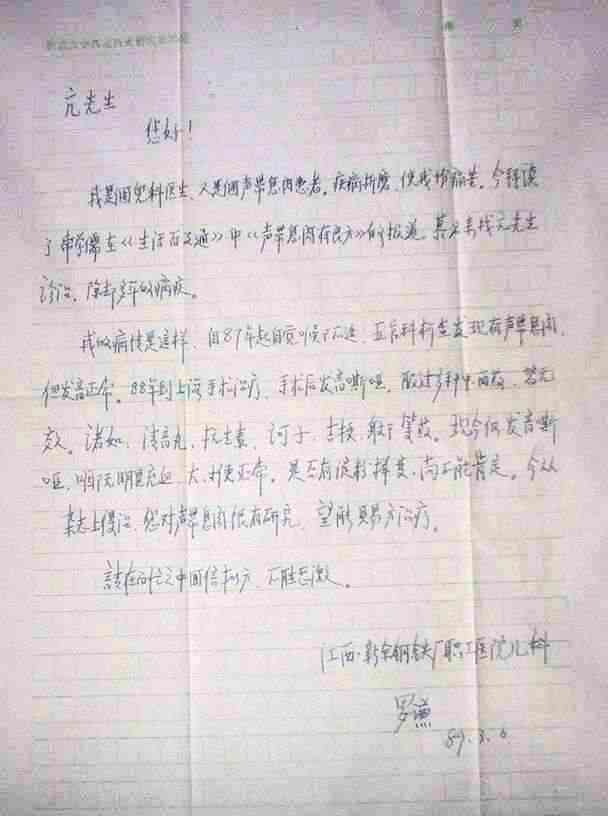 亢先生
您好！
我是个儿科医生，又是个声带息肉患者。疾病折磨，使我增痛苦。今拜读
了申学儒在《生活百事通》中《声带息肉有良方》的报道，甚为去找亢先生
诊治，除却多年的病疾。
我的病情是这样，自87年起自觉喉不适，五官科检查发现有声带息肉，
但发音正常。88年到上海手术治疗，手术后发音嘶哑，服过多种中西药，皆无
效。诸如、清音丸、抗生素、诃子、吉梗、等药。现今仅发音嘶
哑，咽喉无明显充血，大、小便正常。是否有淀粉样变，尚不能肯定。今从
杂志上得治，您对声带息肉很有研究，望能赐方治疗。
请在百忙之中回信、不胜感激。
江西·新余钢铁厂职工医院儿科
罗
89.3.6